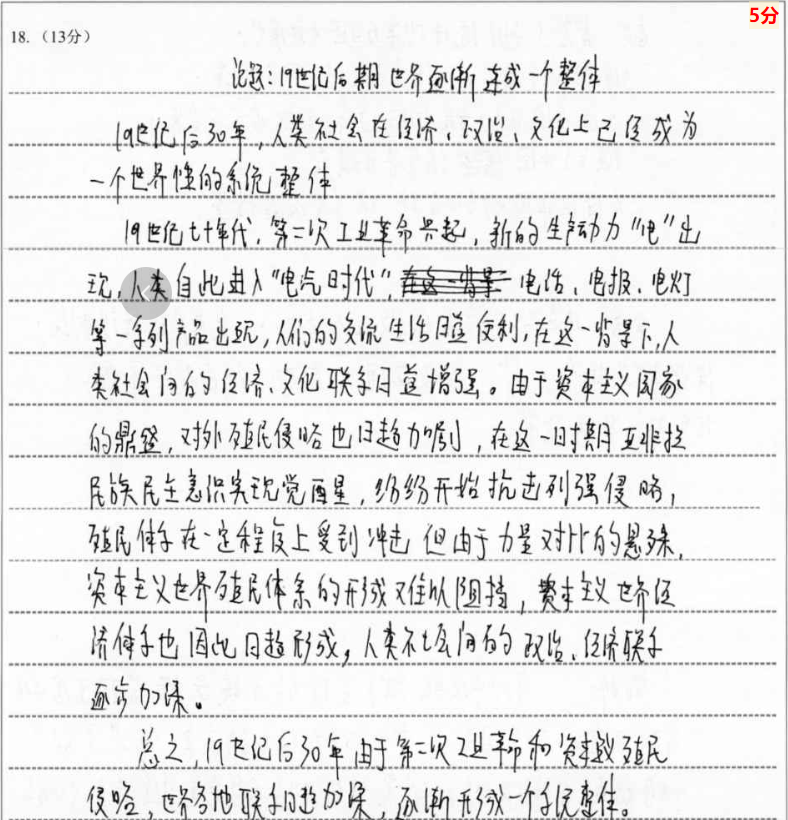 5分
18.（13分）
论题：19世纪后期世界逐渐连成一个整体
19世纪后30年，人类社会在经济、政治、文化上已经成为
一个世界性的系统整体
19世纪七十年代，第二次工业革命兴起，新的生产动力“电”出
现，人类自此进入“电气时代”，在这一背景 电话、电报、电灯
等一系列产品出现，人们的交流生活日益便利，在这一背景下，人
类社会间的经济、文化联系日益增强。由于资本主义国家
的鼎盛，对外殖民侵略也日趋加剧，在这一时期亚非拉
民族民主意识实现觉醒，纷纷开始抗击列强侵略，
殖民体系在一定程度上受到冲击 但由于力量对比的悬殊，
资本主义世界殖民体系的形成难以阻挡，资本主义世界经
济体系也因此日趋形成，人类社会间的政治、经济联系
逐步加深。
总之，19世纪后30年由于第二次工业革命和资本主义殖民
侵略，世界各地联系日趋加深，逐渐形成一个系统整体。